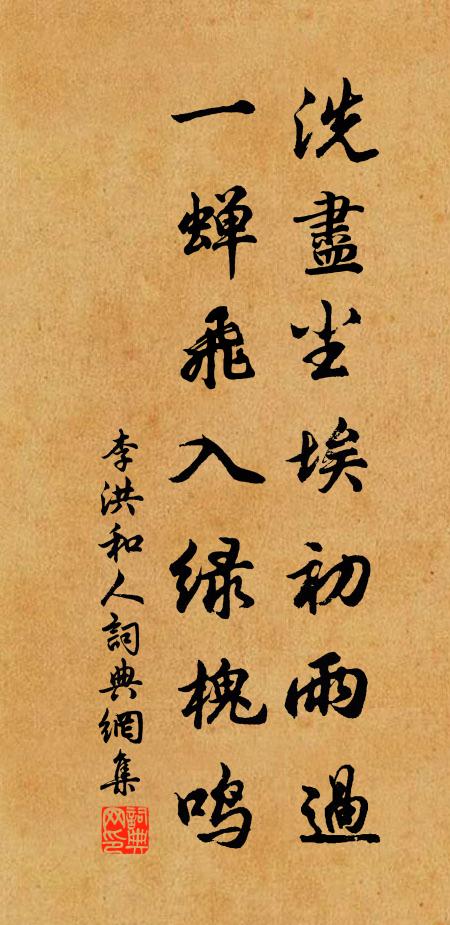 洗盡尘埃初雨過
一蝉飛入绿槐鸣
李洪和人詞典網集
詞典
网印